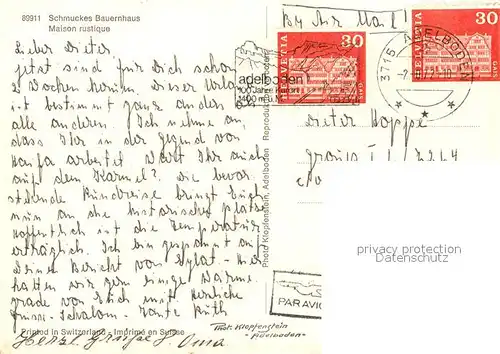 89911 Schmuckes Bauernhaus
Maison rustique
By Air Mail!
HELVETIA 30
HELVETIA 30
3715 ADELBODEN
adelboden
100 Jahre Kurort
1400 m ü. M.
Lieber Dieter
jetzt sind für Dich schon
2 Wochen herum. Dieser Urlaub
ist bestimmt ganz anders als
alle anderen. Ich nehme an
dass Ihr in der Gegend von
Haifa arbeitet. Wart Ihr auch
auf dem Karmel? Die bevor
stehende Rundreise bringt Euch
nun an die historischen Plätze
Hoffentlich ist die Temperatur
erträglich. Ich bin gespannt auf
Deinen Bericht von Eylat. Hier
hätten wir gern einige Wärme
grade von Euch mit Herzliche
Schalom Tante Ruth
Herzl. Grüße Oma
Dieter Hoppe
Photo Klopfenstein, Adelboden
privacy protection
Datenschutz
PAR AVION
Phot. Klopfenstein
Adelboden
Printed in Switzerland - Imprimé en Suisse